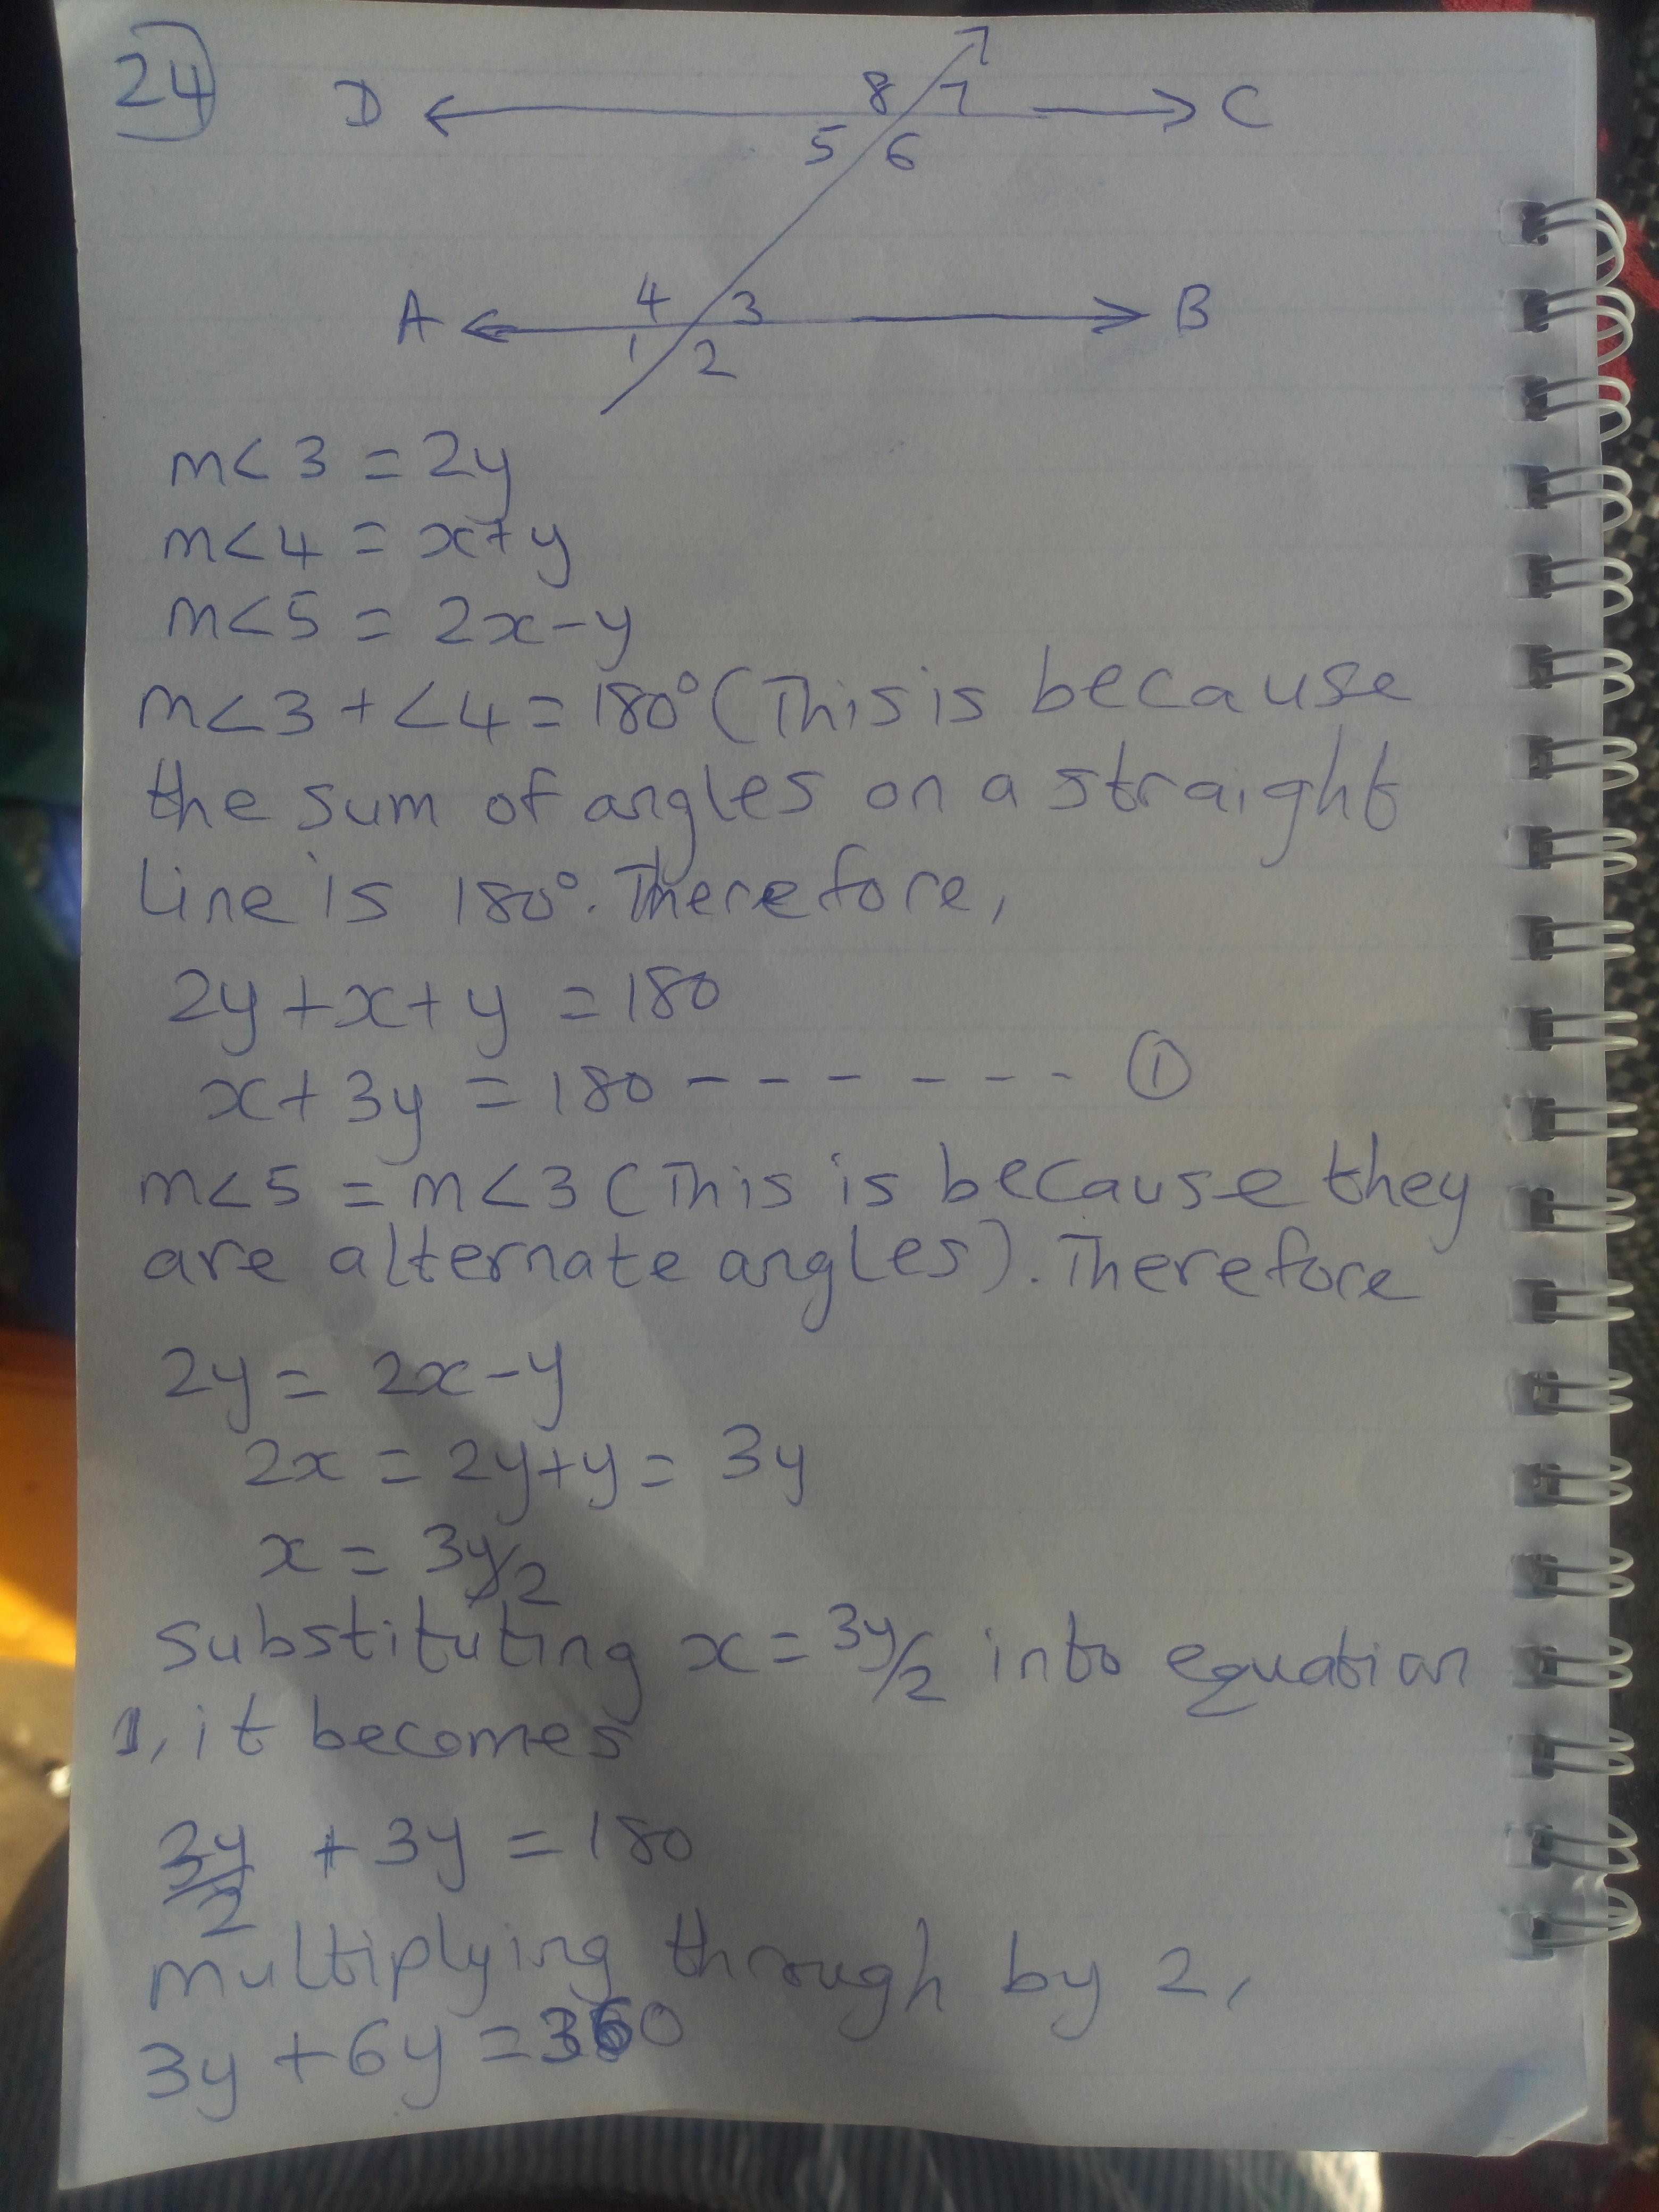 24
D 8 7 C
5 6
A 4 3 B
1 2
m<3 = 2y
m<4 = x+y
m<5 = 2x-y
m<3 + <4 = 180° (This is because
the sum of angles on a straight
line is 180°. Therefore,
2y + x + y = 180
x + 3y = 180 - - - - - - - ①
m<5 = m<3 (This is because they
are alternate angles). Therefore
2y = 2x - y
2x = 2y + y = 3y
x = 3y/2
Substituting x = 3y/2 into equation
1, it becomes
3y/2 + 3y = 180
Multiplying through by 2,
3y + 6y = 360